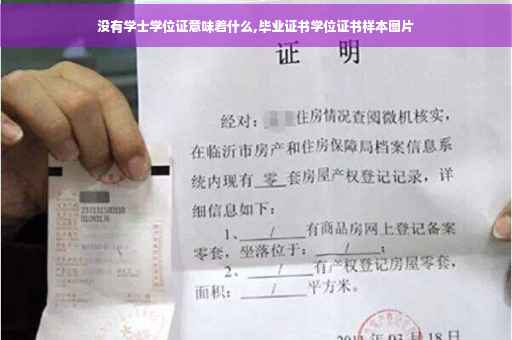 没有学士学位证意味着什么,毕业证书学位证书样本图片
证 明
经对：住房情况查阅微机核实，
在临沂市房产和住房保障局档案信息系
统内现有 零 套房屋产权登记记录，详
细信息如下：
1、 / 有商品房网上登记备案
零套，坐落位于： / ；
2、 / 有产权登记房屋零套，
面积： / 平方米。
月 18 日